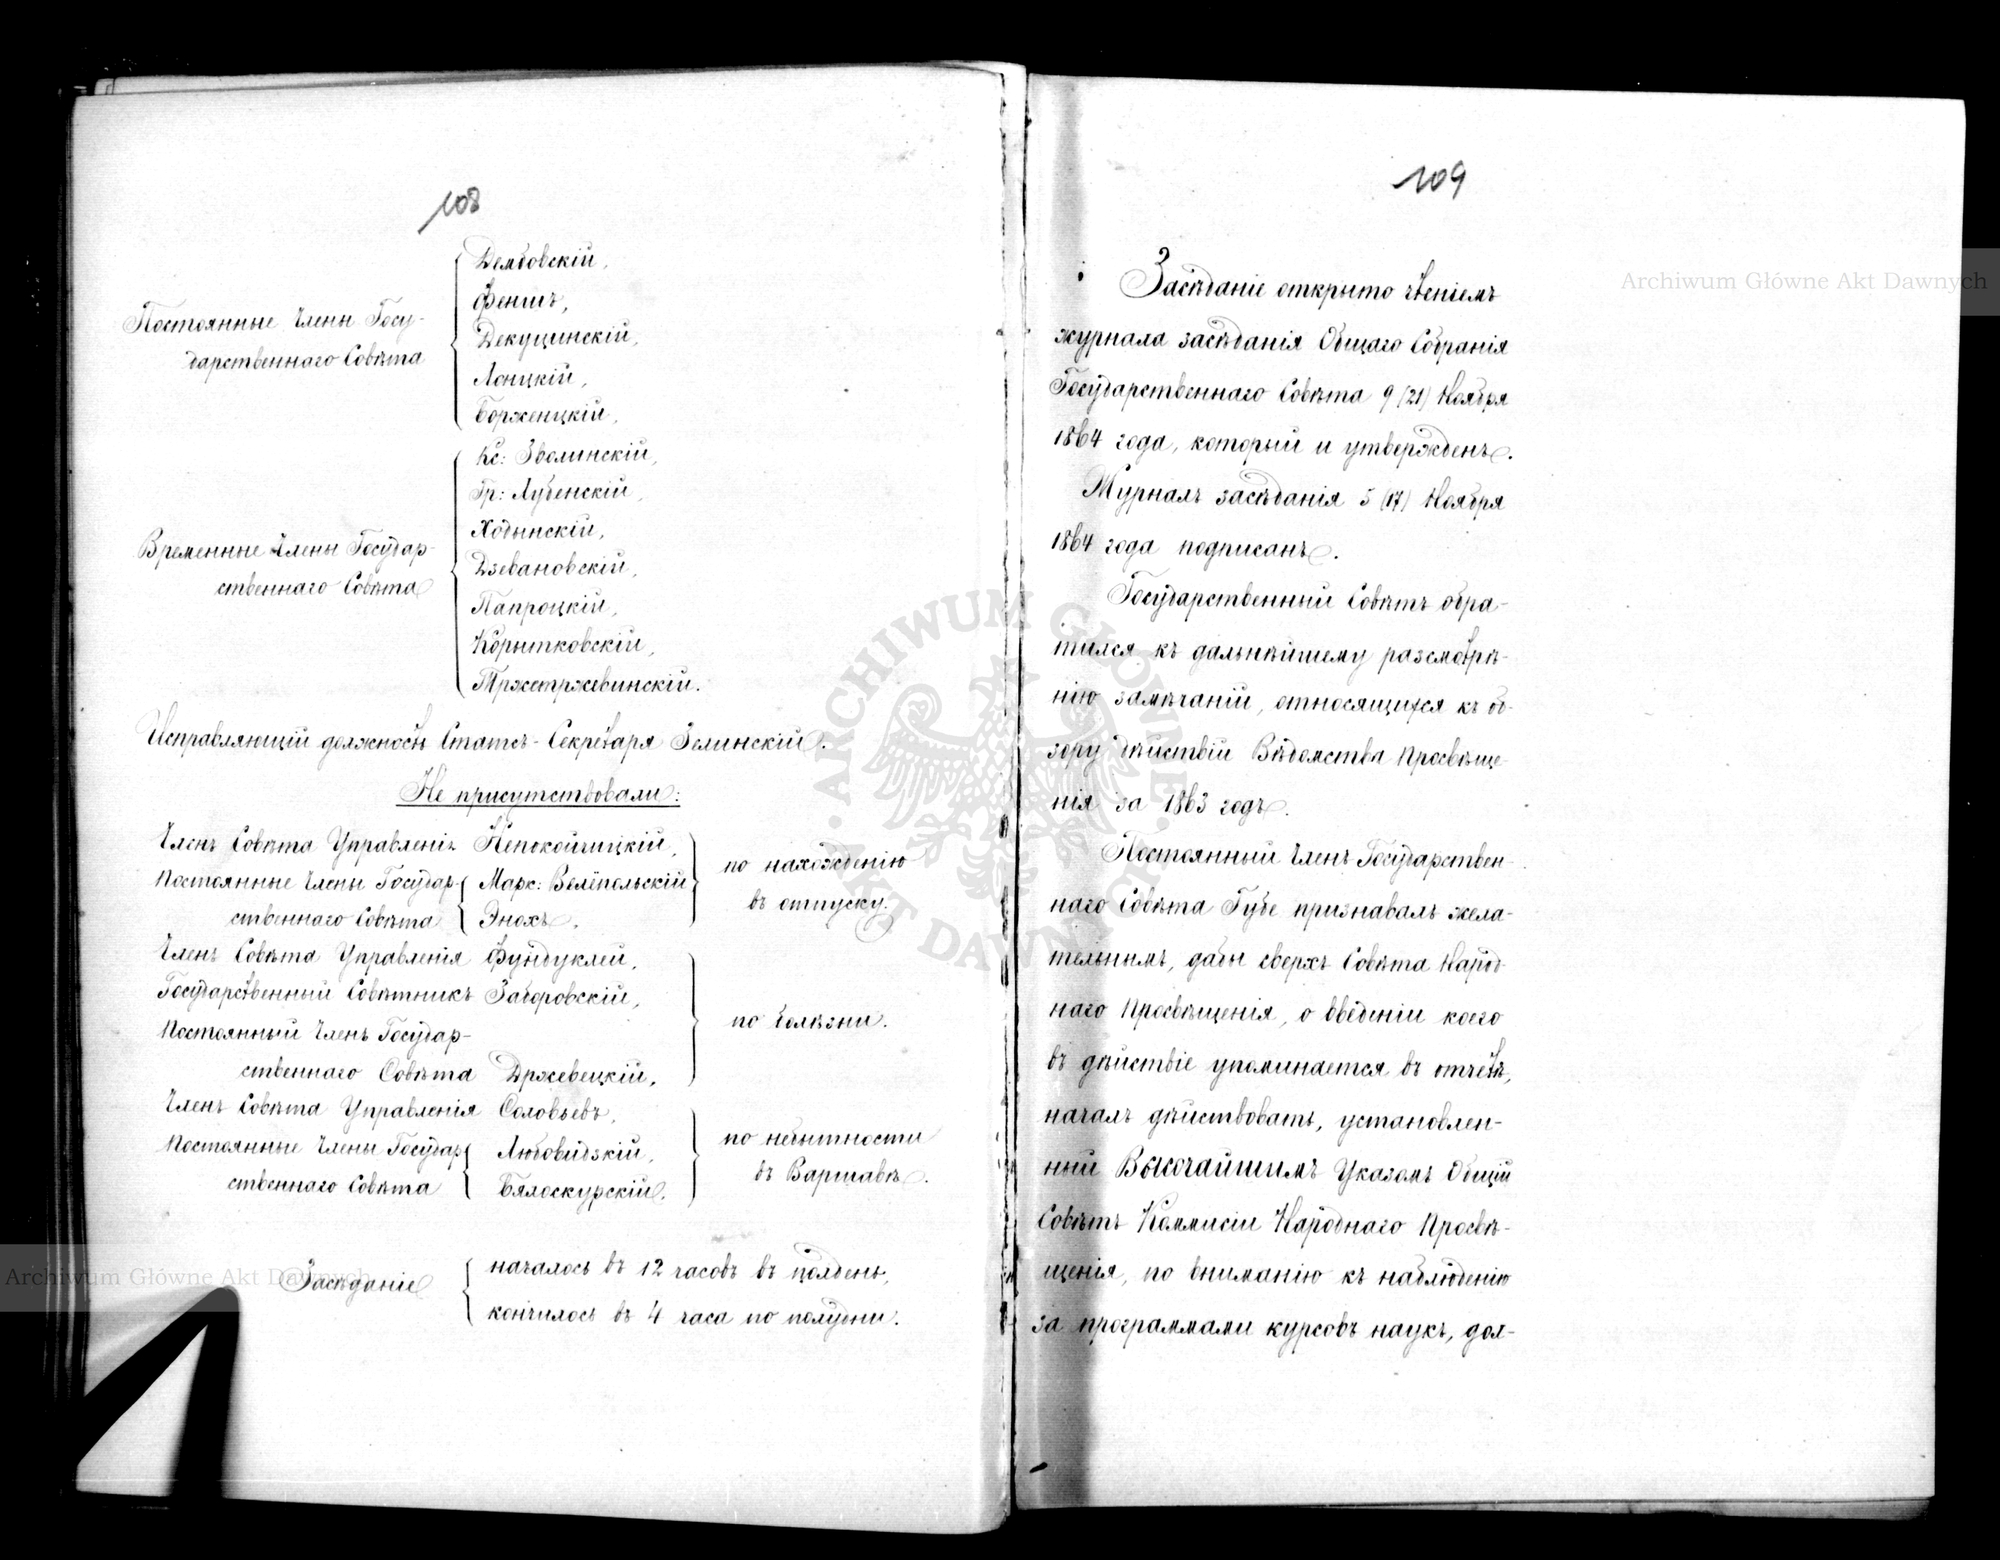 108
Постоянные Члены Госу-
дарственнаго Совѣта
Дембовскій,
Феншъ,
Декуцинскій,
Лонцкій,
Борженцкій,
Временные Члены Государ-
ственнаго Совѣта
Кс: Зволинскій,
Гр: Лубенскій,
Ходынскій,
Дзевановскій,
Папроцкій,
Корытковскій,
Тржетржевинскій.
Исправляющій должность Статсъ-Секретаря Зелинскій.
Не присутствовали:
Членъ Совѣта Управленія Непокойчицкій,
Постоянные Члены Государ-
ственнаго Совѣта
Марк: Велепольскій
Энохъ.
по нахожденію
въ отпуску.
Членъ Совѣта Управленія Фундуклей,
Государственный Совѣтникъ Заборовскій,
Постоянный Членъ Государ-
ственнаго Совѣта Држевецкій,
по болѣзни.
Членъ Совѣта Управленія Соловьевъ,
Постоянные Члены Государ
ственнаго Совѣта
Любовидзкій,
Бялоскурскій.
по небытности
въ Варшавѣ.
Засѣданіе
началось въ 12 часовъ въ полдень,
кончилось въ 4 часа по полудни.
109
Засѣданіе открыто чтеніемъ
журнала засѣданія Общаго Собранія
Государственнаго Совѣта 9 (21) Ноября
1864 года, который и утвержденъ.
Журналъ засѣданія 5 (17) Ноября
1864 года подписанъ.
Государственный Совѣтъ обра-
тился къ дальнѣйшему разсмотрѣ-
нію замѣчаній, относящихся къ об-
зору дѣйствій Вѣдомства Просвѣще-
нія за 1863 годъ.
Постоянный Членъ Государствен-
наго Совѣта Губе признавалъ жела-
тельнымъ, дабы сверхъ Совѣта Народ-
наго Просвѣщенія, о введеніи коего
въ дѣйствіе упоминается въ отчетѣ,
началъ дѣйствовать, установлен-
ный Высочайшимъ Указомъ Общій
Совѣтъ Коммисіи Народнаго Просвѣ-
щенія, по вниманію къ наблюденію
за программами курсовъ наукъ, дол-
Archiwum Główne Akt Dawnych
Archiwum Główne Akt Dawnych
ARCHIWUM GŁÓWNE AKT DAWNYCH